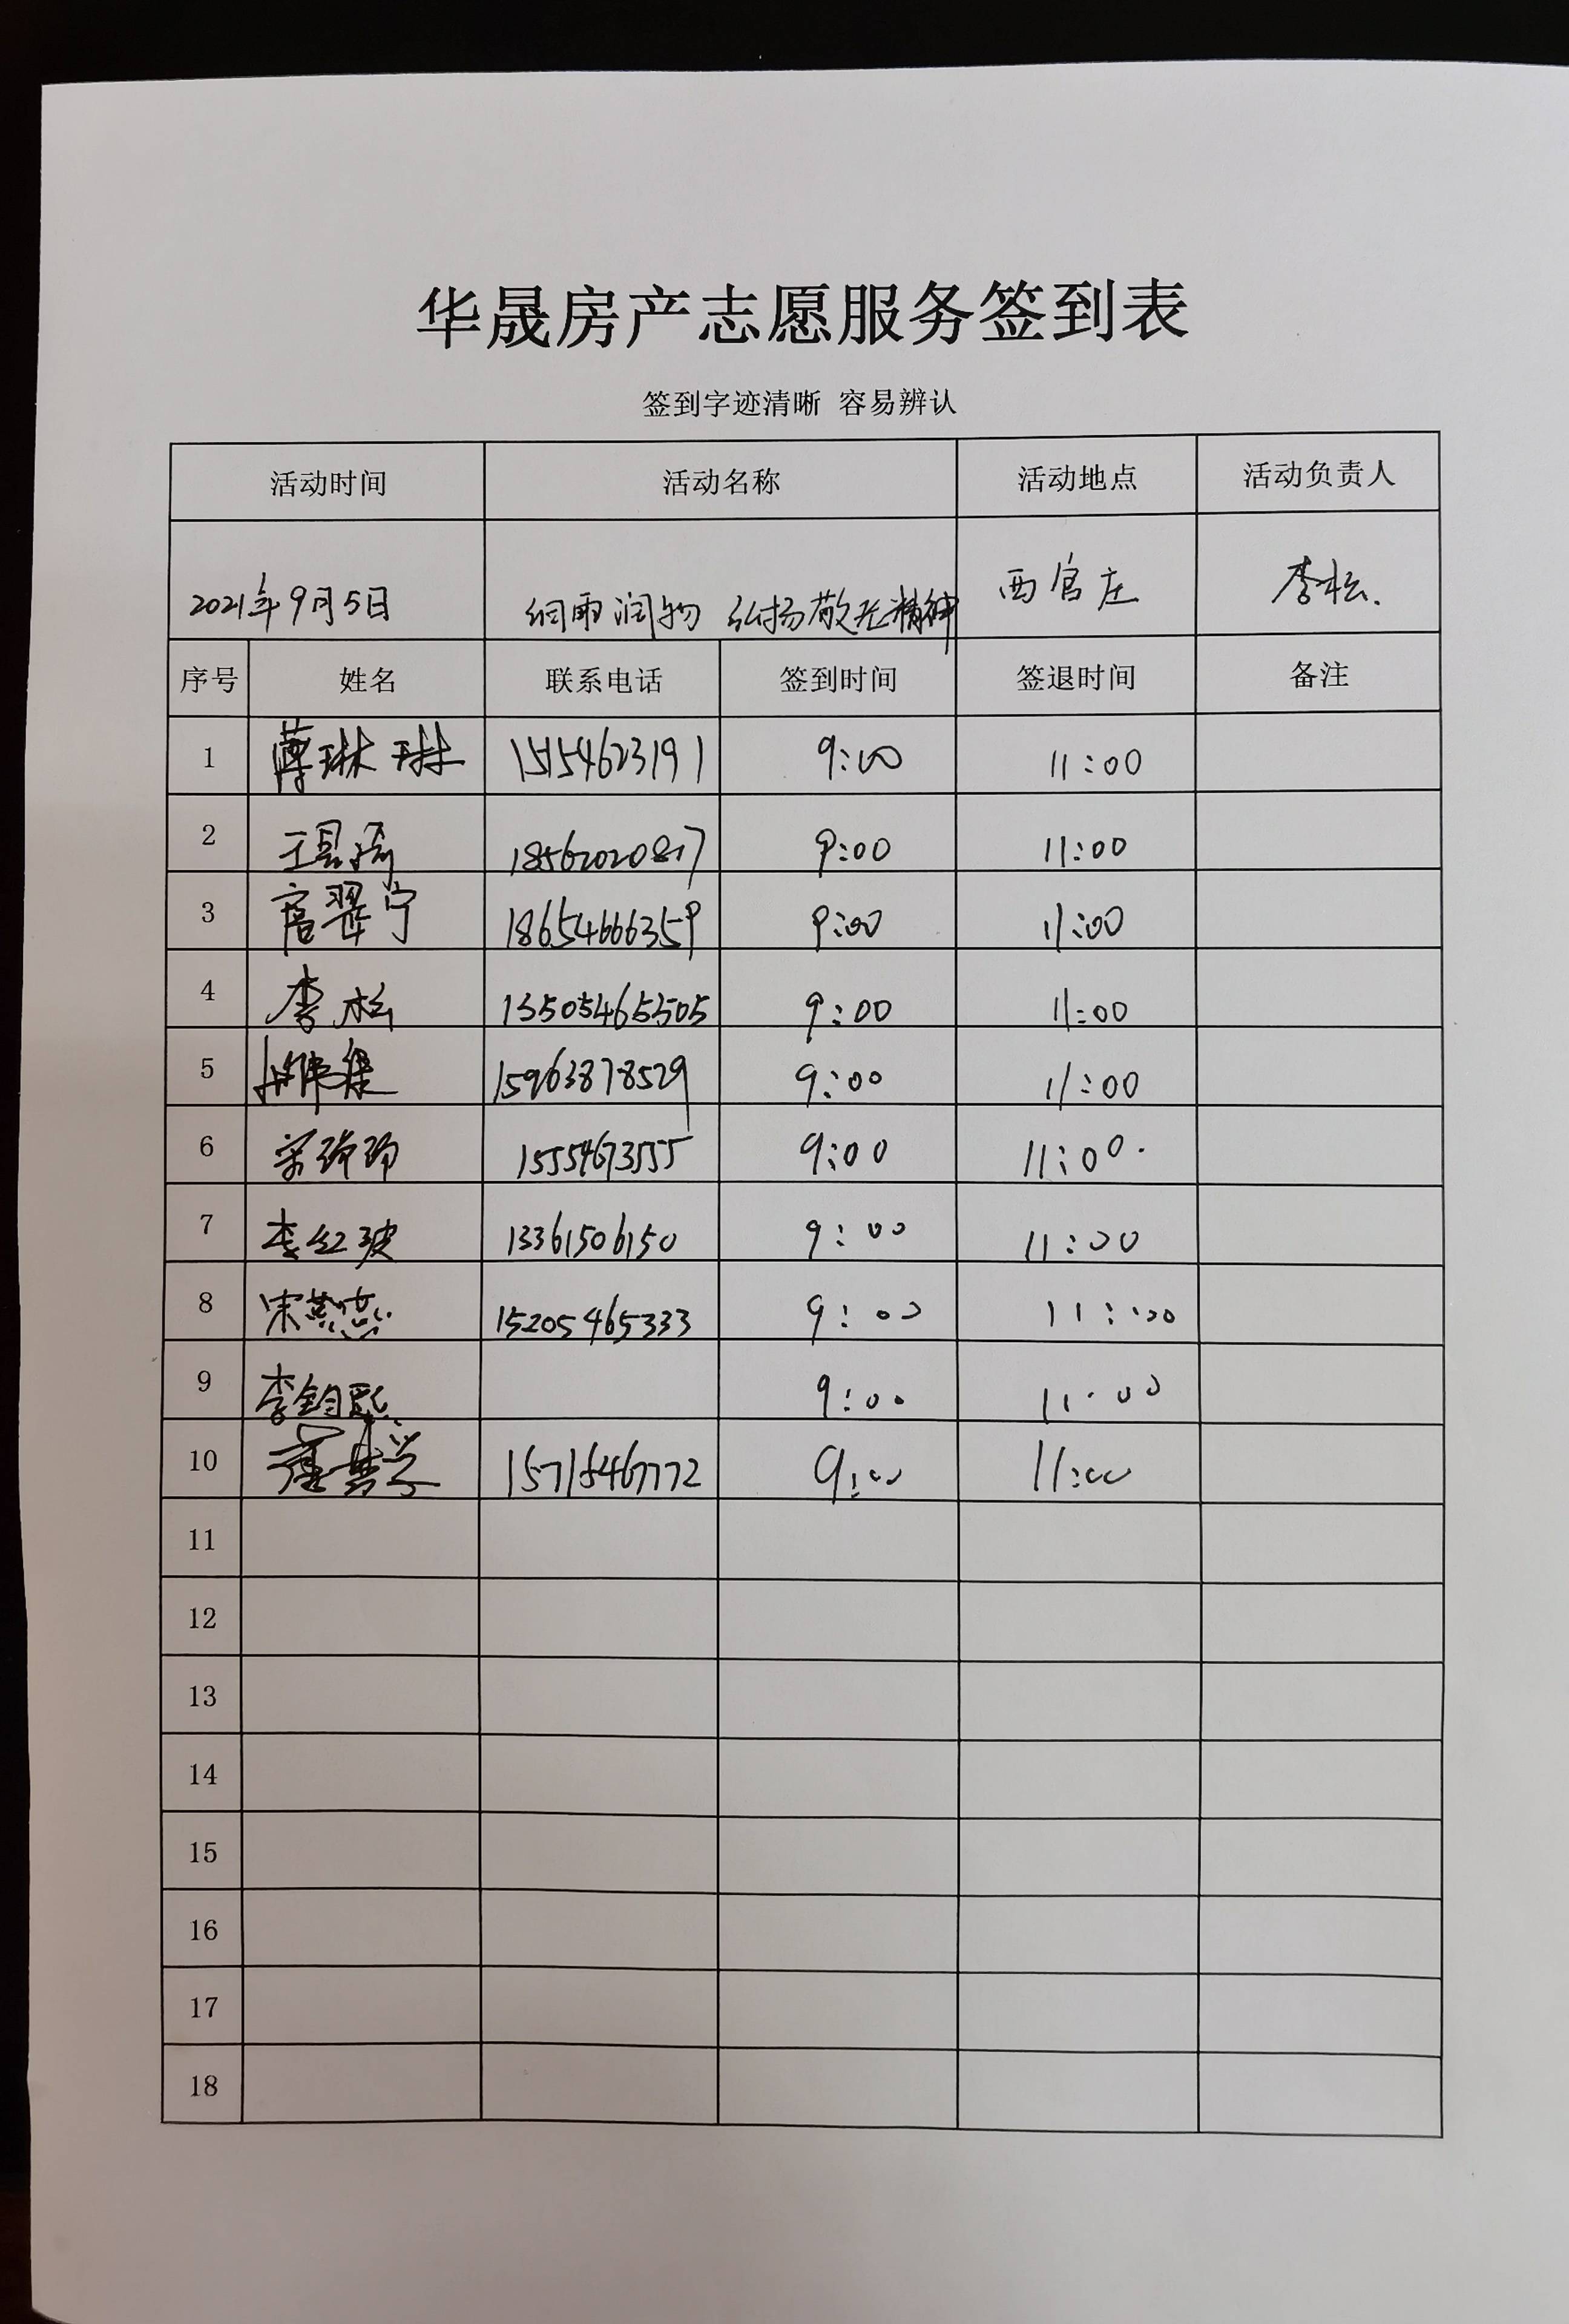 华晟房产志愿服务签到表
签到字迹清晰 容易辨认
活动时间 活动名称 活动地点 活动负责人
2021年9月5日 细雨润物 弘扬敬老精神 西官庄 李松.
序号 姓名 联系电话 签到时间 签退时间 备注
1 薄琳琳 15154623191 9:00 11:00
2 18562020817 9:00 11:00
3 扈翠宁 18654666359 9:00 11:00
4 李松 13505465505 9:00 11:00
5 15963878529 9:00 11:00
6 15554673555 9:00 11:00.
7 李红波 13361506150 9:00 11:00
8 宋燕燕 15205465333 9:00 11:00
9 李钧熙 9:00 11:00
10 15715467772 9:00 11:00
11
12
13
14
15
16
17
18